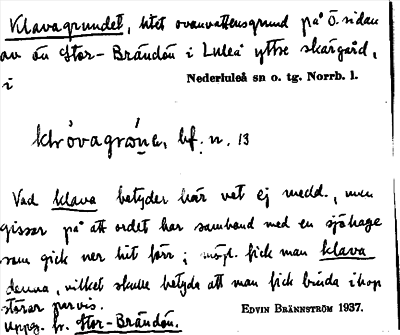 Klavagrundet, litet ovanvattensgrund på Ö. sidan
av ön Stor-Brändön i Luleå yttre skärgård,
i Nederluleå sn o. tg. Norrb. l.
bf. n. 13
Vad klava betyder här vet ej medd., men
gissar på att ordet har samband med en sjöhage
som gick ner hit förr; möjl. fick man klava
denna, vilket skulle betyda att man fick binda ihop
störar parvis.
Uppg. fr. Stor-Brändön. EDVIN BRÄNNSTRÖM 1937.